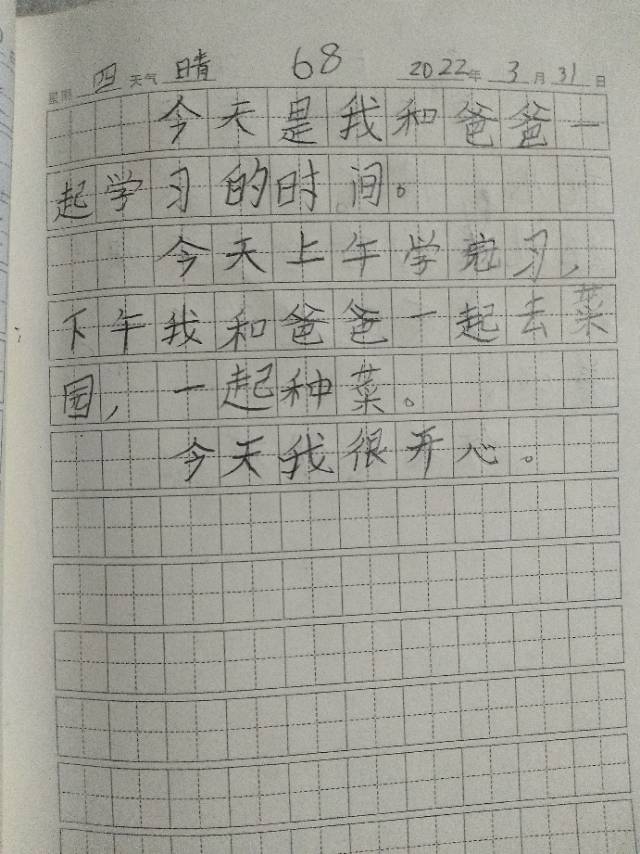 68
星期 四 天气 晴 2022年 3月 31日
今天是我和爸爸一
起学习的时间。
今天上午学完习，
下午我和爸爸一起去菜
园，一起种菜。
今天我很开心。